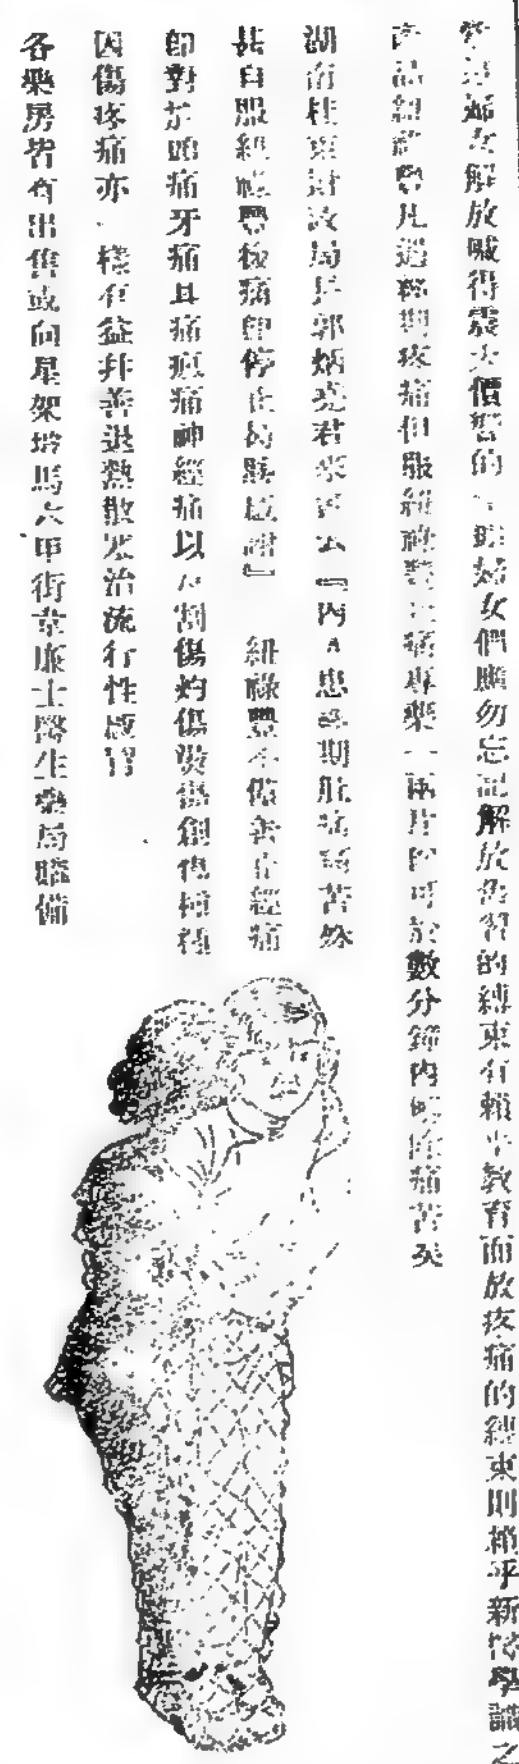 當是婦女解放喊得震天價響的一時婦女們應勿忘記解放舊習的縛束有賴乎教育而放疼痛的縛束則賴乎新醫學識之
產品紐祿豐凡遇經期疼痛但服紐祿豐止痛專藥一兩片即可於數分鐘內解除痛苦矣
湖南桂東財政局長郭炳堯君來函云『內人患經期肚痛頗苦然
甚自服紐祿豐後痛即停止曷勝感謝』紐祿豐不僅善止經痛
即對於頭痛牙痛耳痛瘋痛神經痛以及割傷灼傷燙傷創傷種種
因傷疼痛亦一樣有益并善退熱散寒治流行性感冒
各藥房皆有出售或向星架坡馬六甲街韋廉士醫生藥局購備